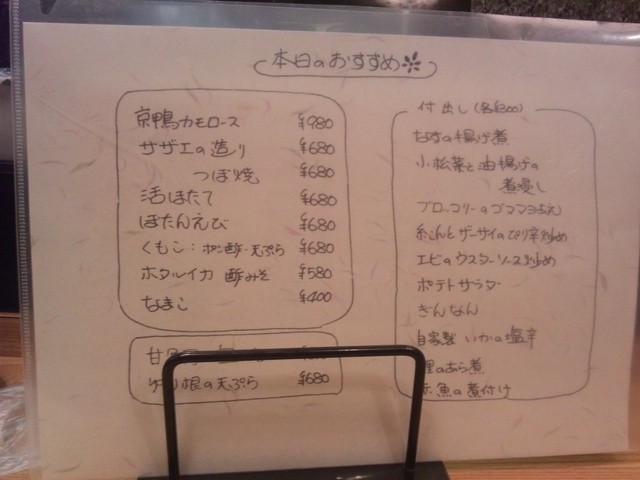 本日のおすすめ
京鴨カモロース ¥980
サザエの造り ¥680
つぼ焼 ¥680
活ほたて ¥680
ぼたんえび ¥680
くもこ:ポン酢・天ぷら ¥680
ホタルイカ 酢みそ ¥580
なまこ ¥400
ゆり根の天ぷら ¥680
付出し(各¥300)
なすの揚げ煮
小松菜と油揚げの
煮浸し
ブロッコリーのゴママヨあえ
糸こんとザーサイのぴり辛炒め
エビのウスターソース炒め
ポテトサラダ
ぎんなん
自家製 いかの塩辛
のあら煮
魚の煮付け